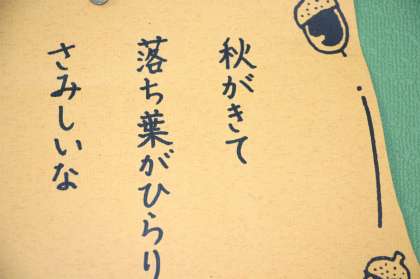 秋がきて
落ち葉がひらり
さみしいな